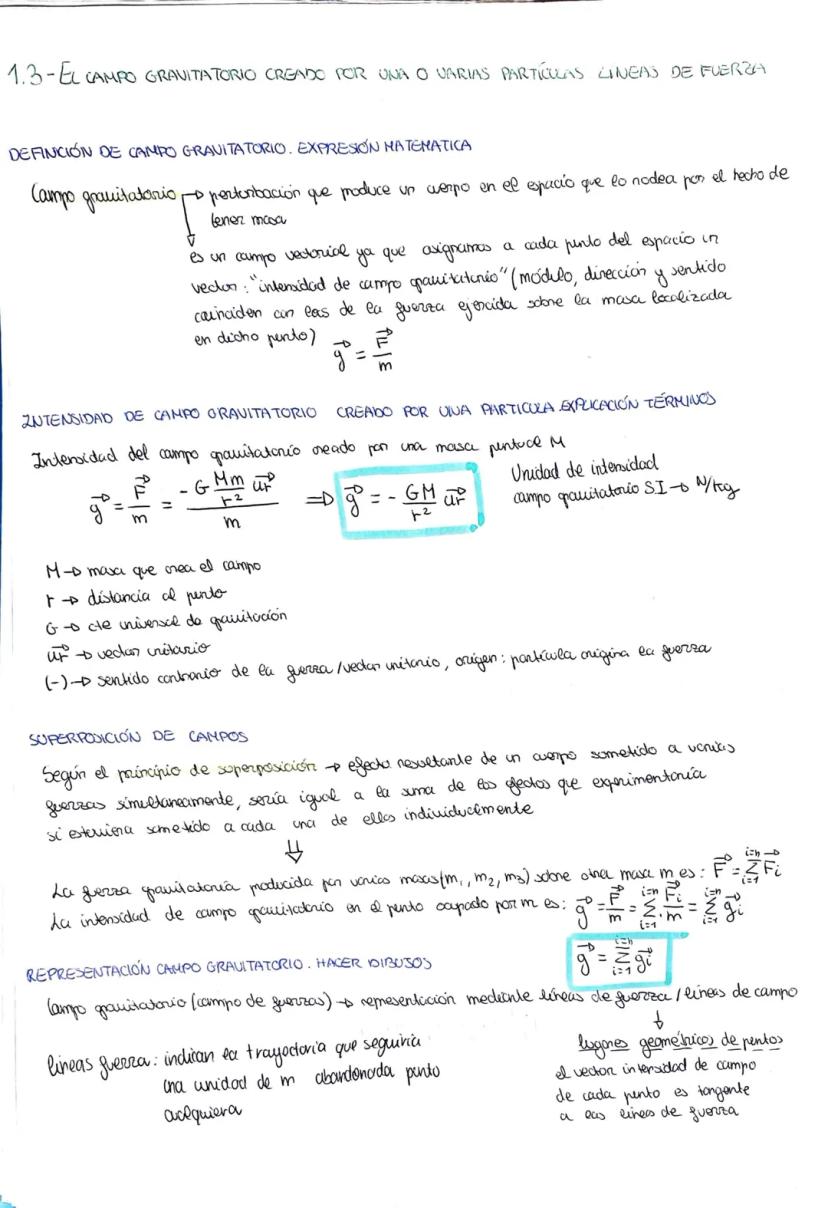 1.3-EL CAMPO GRAVITATORIO CREADO POR UNA O VARIAS PARTÍCULAS LINEAS DE FUERZA
DEFINCIÓN DE CAMPO GRAVITATORIO. EXPRESIÓN MATEMATICA
Campo gravitatorio → perturbación que produce un cuerpo en el espacio que lo rodea por el hecho de
tener masa
es un campo vectorial ya que asignamos a cada punto del espacio un
vector: "intensidad de campo gravitatorio" (módulo, dirección y sentido
coinciden con las de la fuerza ejercida sobre la masa localizada
en dicho punto) g⃗ = F⃗/m
INTENSIDAD DE CAMPO GRAVITATORIO CREADO POR UNA PARTICULA. EXPLICACIÓN TÉRMINOS
Intensidad del campo gravitatorio creado por una masa puntual M
g⃗ = F⃗/m = (-G Mm/r² u⃗r)/m ⇒ g⃗ = - GM/r² u⃗r
Unidad de intensidad
campo gravitatorio SI → N/kg
M → masa que crea el campo
r → distancia al punto
G → cte universal de gravitación
u⃗r → vector unitario
(-) → sentido contrario de la fuerza/vector unitario, origen: partícula origina la fuerza
SUPERPOSICIÓN DE CAMPOS
Según el principio de superposición → efecto resultante de un cuerpo sometido a varias
fuerzas simultaneamente, sería igual a la suma de los efectos que experimentaría
si estuviera sometido a cada una de ellas individualmente
⇓
La fuerza gravitatoria producida por varias masas (m₁, m₂, m₃) sobre otra masa m es: F⃗ = Σ(i=1, i=n) F⃗i
La intensidad de campo gravitatorio en el punto ocupado por m es: g⃗ = F⃗/m = Σ(i=1, i=n) F⃗i/m = Σ(i=1, i=n) g⃗i
g⃗ = Σ(i=1, i=n) g⃗i
REPRESENTACIÓN CAMPO GRAVITATORIO. HACER DIBUJOS
Campo gravitatorio (campo de fuerzas) → representación mediante líneas de fuerza / lineas de campo
↓
lineas fuerza: indican la trayectoria que seguiría
una unidad de m abandonada punto
cualquiera
lugares geométricos de puntos
el vector intensidad de campo
de cada punto es tangente
a las lineas de fuerza